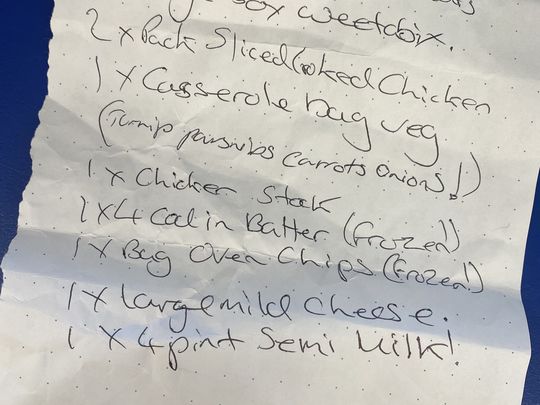 box weetabix.
2 x Pack Sliced Cooked Chicken
1 x Casserole bag veg
(Turnip parsnibs Carrots onions!)
1 x Chicken Stock
1 x 4 Cod in Batter (Frozen)
1 x Bag Oven Chips (Frozen)
1 x Large mild cheese.
1 x 4 pint Semi Milk!